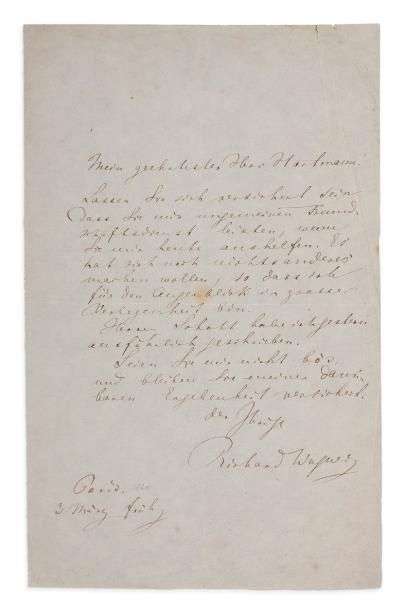 Mein geehrtester Herr Hartmann!
Lassen Sie sich versichert sein
dass Sie mir ungemeinen Freund-
schaftsdienst leisten, wenn
Sie mir heute aushelfen. Es
hat sich noch nichts anderes
machen wollen, so dass ich
für den Augenblick in grosser
Verlegenheit bin.
Herrn Schott habe ich gestern
ausführlich geschrieben.
Seien Sie mir nicht bös,
und bleiben Sie meiner dank-
baren Ergebenheit versichert.
der Ihrige
Richard Wagner
Paris,
3. März früh